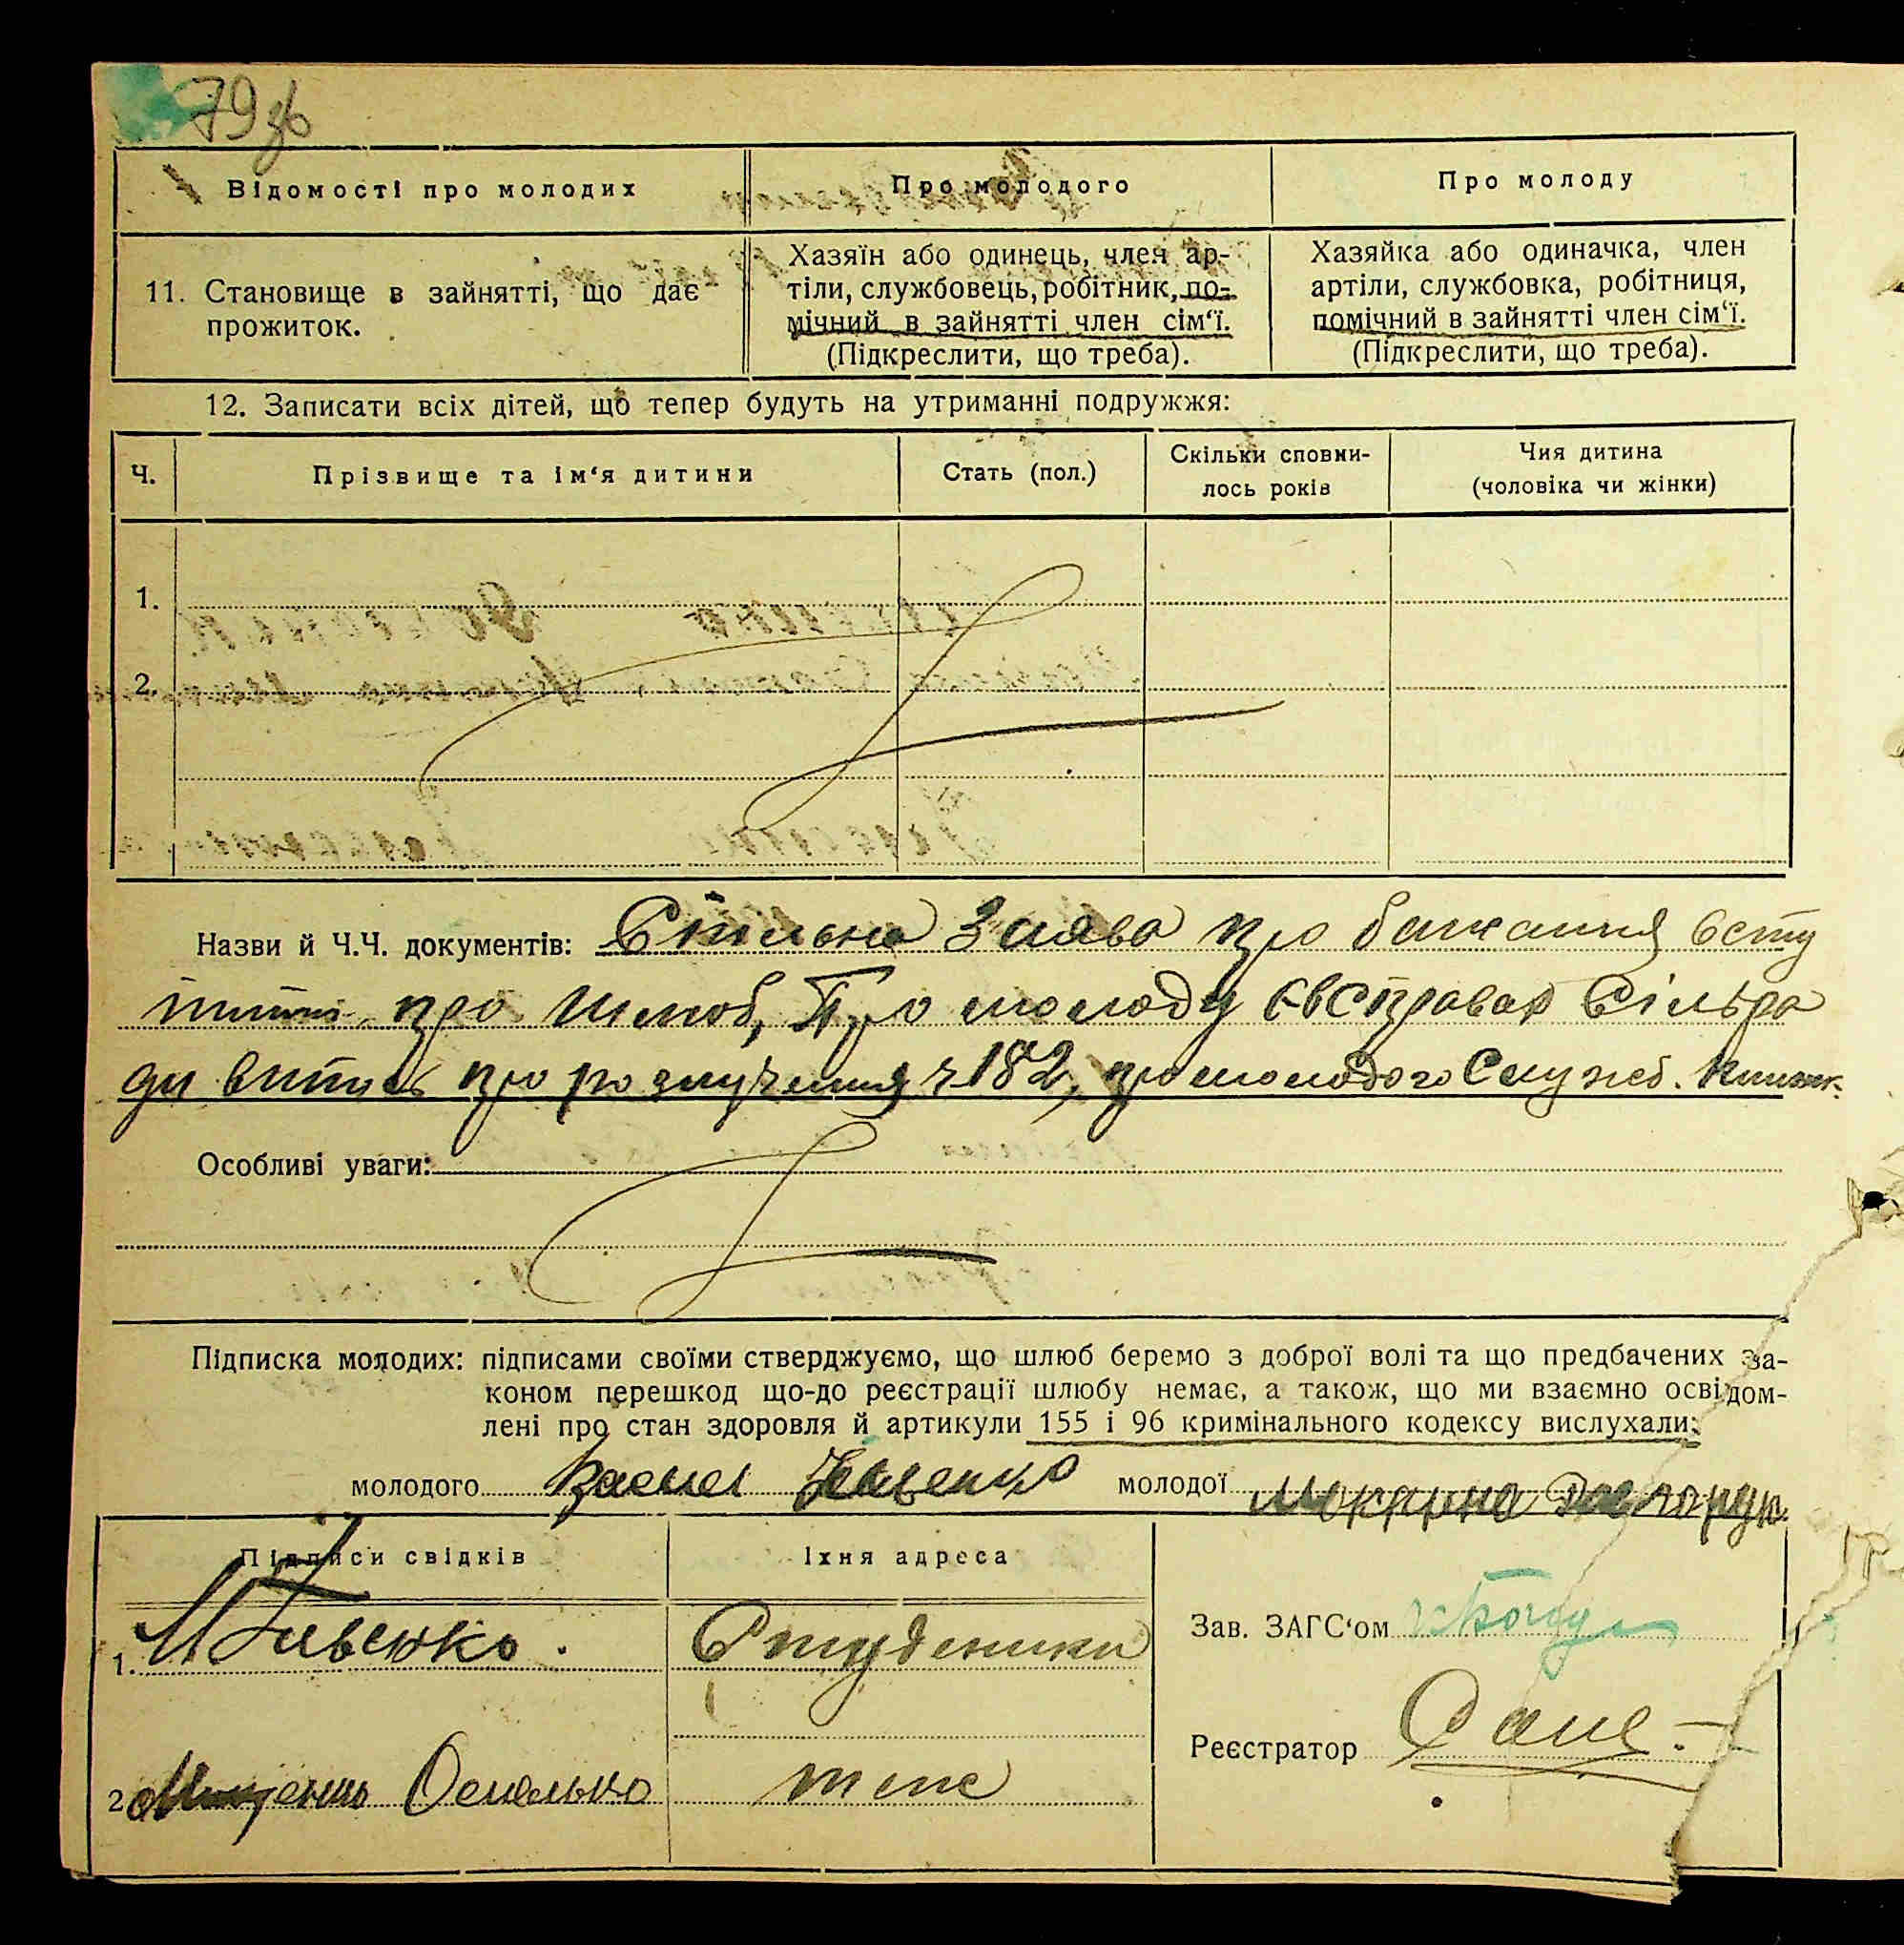 79 зв
Відомості про молодих
Про молодого
Про молоду
11. Становище в зайнятті, що дає
прожиток.
Хазяїн або одинець, член ар-
тіли, службовець, робітник, по-
мічний в зайнятті член сім‘ї.
(Підкреслити, що треба).
Хазяйка або одиначка, член
артіли, службовка, робітниця,
помічний в зайнятті член сім‘ї.
(Підкреслити, що треба).
12. Записати всіх дітей, що тепер будуть на утриманні подружжя:
Ч.
Прізвище та ім‘я дитини
Стать (пол.)
Скільки сповни-
лось років
Чия дитина
(чоловіка чи жінки)
1.
2.
Назви й Ч.Ч. документів: Спільна Заява про бажання всту
про шлюб, Про молоду Сільра
ди витяг про розлучення ч 182, про молодого Служб. Книжк.
Особливі уваги:
Підписка молодих: підписами своїми стверджуємо, що шлюб беремо з доброї волі та що предбачених за-
коном перешкод що-до реєстрації шлюбу немає, а також, що ми взаємно освідом-
лені про стан здоровля й артикули 155 і 96 кримінального кодексу вислухали:
молодого молодої Мокрина
Підписи свідків
Їхня адреса
1.
Студеники
Зав. ЗАГС‘ом
Реєстратор
2 Омелько
теж